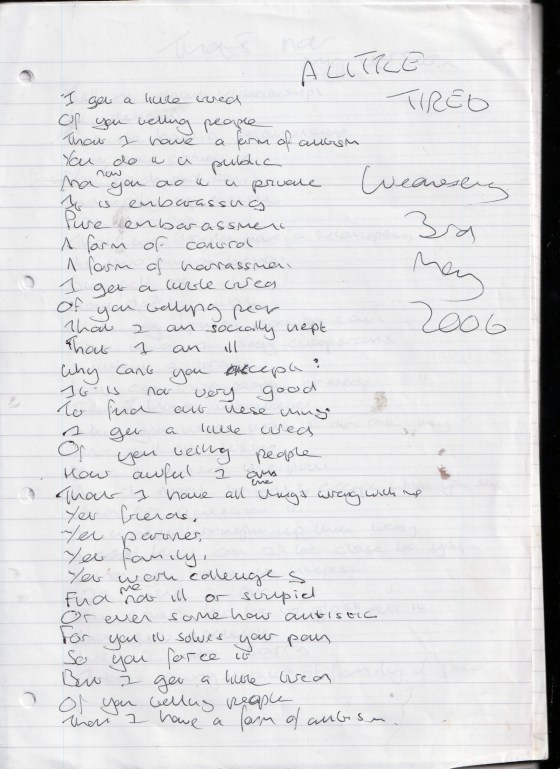 A LITTLE
TIRED
I get a little tired
Of you telling people
That I have a form of autism
You do it in public
Now you do it in private
It is embarassing
Pure embarassment
A form of control
A form of harrassment
I get a little tired
Of you telling people
That I am socially inept
That I am ill
Why cant you accept?
It is not very good
To find out these things
I get a little tired
Of you telling people
How awful I am
That I have all things wrong with me
Yet friends,
Yet partner,
Yet family,
Yet work colleuges
Find me not ill or stupid
Or even somehow autistic
For you it solves your pain
So you force it
But I get a little tired
Of you telling people
That I have a form of autism.
Wednesday
3rd
May
2006